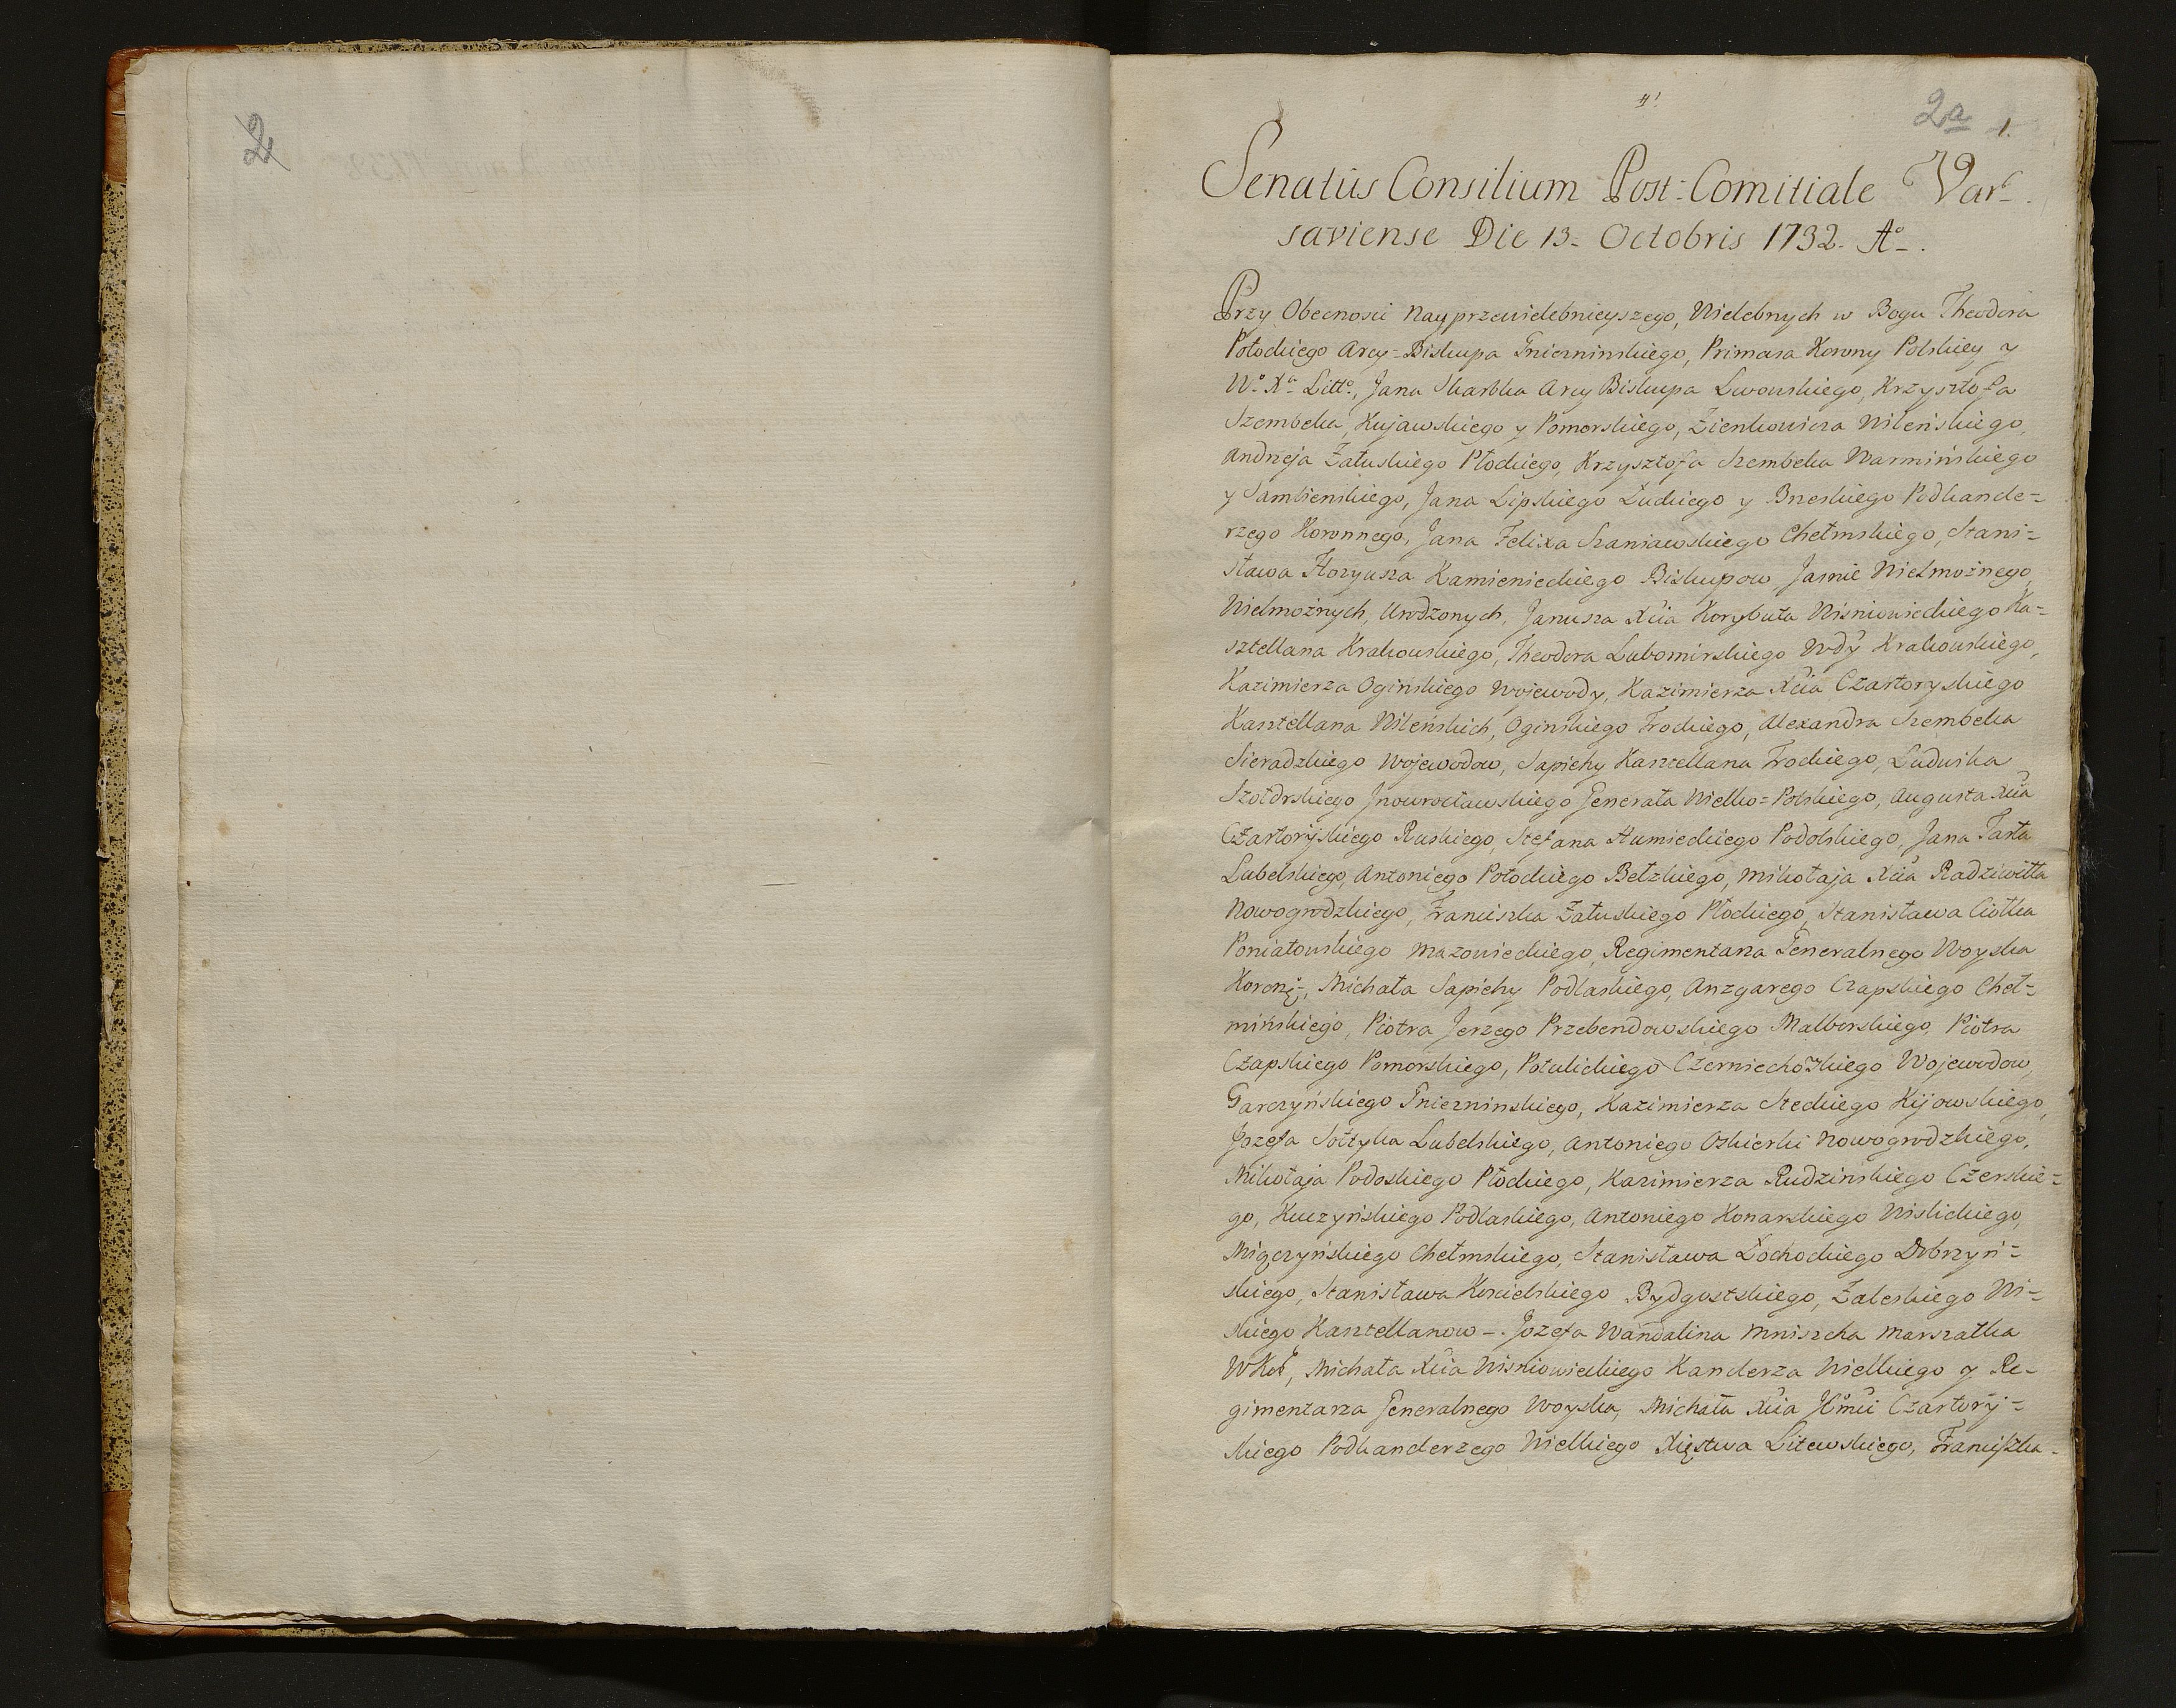 2
2a 1.
Senatûs Consilium Post-Comitiale Var-
saviense Die 13. Octobris 1732. Aº.
Przy Obecnosci Nayprzewielebnieyszego, Wielebnych w Bogu Theodora
Potockiego Arcy-Biskupa Gniezninskiego, Primasa Korony Polskiey y
Wº Xª Littº, Jana Skarbka Arcy Biskupa Lwowskiego, Krzysztofa
Szembeka, Kujawskiego y Pomorskiego, Zienkowicza Wileńskiego,
Andrzeja Załuskiego Płockiego, Krzysztofa Szembeka Warmińskiego
y Sambienskiego, Jana Lipskiego Łuckiego y Brzeskiego Podkancle=
rzego Koronnego, Jana Felixa Szaniawskiego Chełmskiego, Stani=
sława Hozyusza Kamienieckiego Biskupow Jasnie Wielmożnego,
Wielmożnych, Urodzonych, Janusza Xcia Korybuta Wisniowieckiego Ka=
sztellana Krakowskiego, Theodora Lubomirskiego Wdy Krakowskiego,
Kazimierza Oginskiego Wojewody, Kazimierza Xcia Czartoryskiego
Kasztellana Wileńskich, Oginskiego Trockiego, Alexandra Szembeka
Sieradzkiego Wojewodow, Sapiehy Kasztellana Trockiego, Ludwika
Szołdrskiego Jnowrocławskiego Generała Wielko=Polskiego, Augusta Xcia
Czartoryskiego Ruskiego, Stefana Humieckiego Podolskiego, Jana Tarła
Lubelskiego, Antoniego Potockiego Bełzkiego, Mikołaja Xcia Radziwiłła
Nowogrodzkiego, Franciszka Załuskiego Płockiego, Stanisława Ciołka
Poniatowskiego Mazowieckiego, Regimentarza Generalnego Woyska
Koron., Michała Sapiehy Podlaskiego, Anzgarego Czapskiego Cheł=
mińskiego, Piotra Jerzego Przebendowskiego Malborskiego, Piotra
Czapskiego Pomorskiego, Potulickiego Czerniechowskiego Wojewodow,
Garczyńskiego Gniezninskiego, Kazimierza Steckiego Kijowskiego,
Jozefa Sołtyka Lubelskiego, Antoniego Oskierki Nowogrodzkiego,
Mikołaja Podoskiego Płockiego, Kazimierza Rudzinskiego Czerskie=
go, Kuczyńskiego Podlaskiego, Antoniego Konarskiego Wislickiego,
Miączyńskiego Chełmskiego, Stanisława Łochockiego Dobrzyń=
skiego, Stanisława Koscielskiego Bydgostskiego, Zaleskiego Wi=
skiego Kasztellanow-. Jozefa Wandalina Mniszcha Marszałka
WKor, Michała Xcia Wisniowieckiego Kanclerza Wielkiego y Re-
gimentarza Generalnego Woyska, Michała Xcia Czartory=
skiego Podkanclerzego Wielkiego Xięstwa Litewskiego, Franciszka-